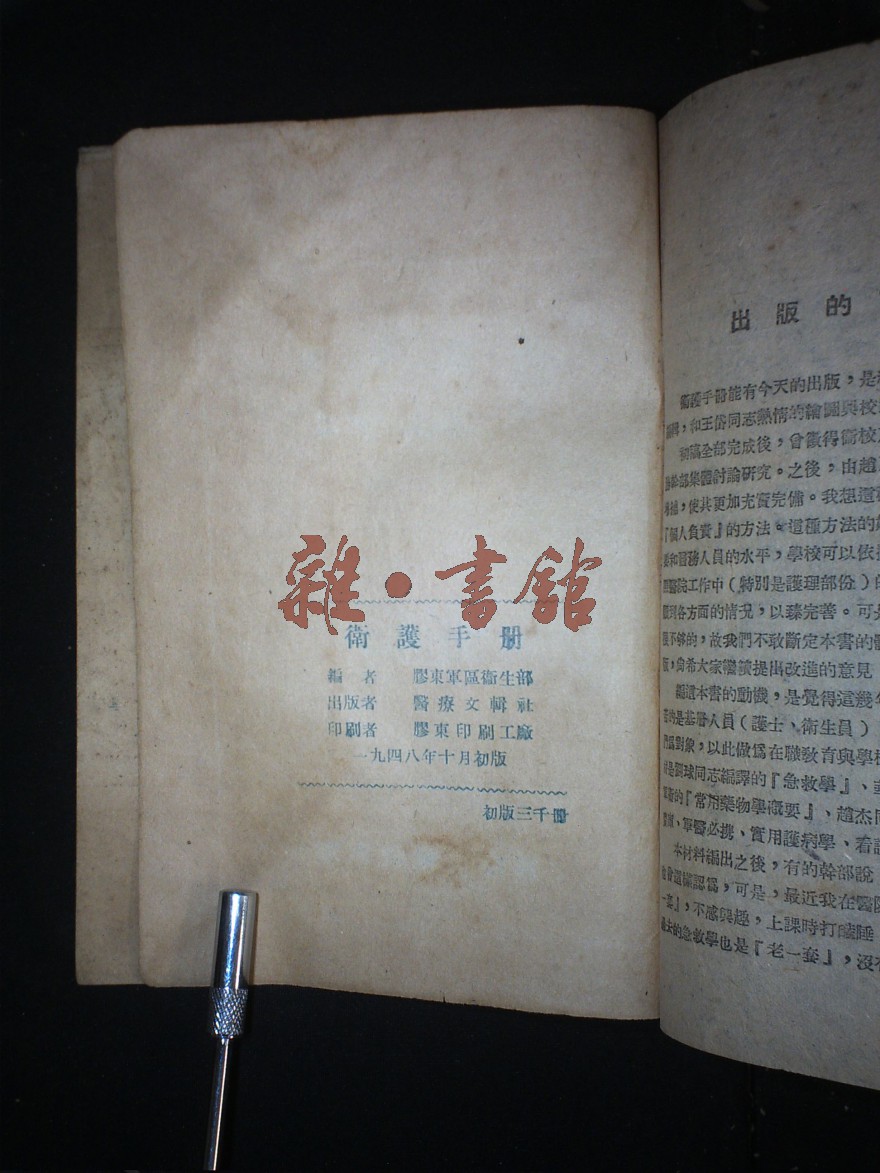 雜·書館
衛護手册
編者 膠東軍區衛生部
出版者 醫療文輯社
印刷者 膠東印刷工廠
一九四八年十月初版
初版三千册
出版的
衛護手册能有今天的出版，是
，和王岱同志熱情的繪圖與校
初稿全部完成後，曾徵得衛校
幹部集體討論研究。之後，由趙
，使其更加充實完備。我想這
『個人負責』的方法。這種方法的
和醫務人員的水平，學校可以依
醫院工作中（特別是護理部份）的
到各方面的情況，以臻完善。可是
不够的，故我們不敢斷定本書的
版，尙希大家繼續提出改進的意見
編這本書的動機，是覺得這幾年
的是基層人員（護士、衛生員）
們爲對象，以此做爲在職敎育與學
是劉球同志編譯的『急救學』、
的『常用藥物學概要』、趙杰同
、軍醫必携、實用護病學、看護
本材料編出之後，有的幹部說
會這樣認爲，可是，最近我在醫院
一套』，不感興趣，上課時打瞌睡
過去的急救學也是『老一套』，沒有